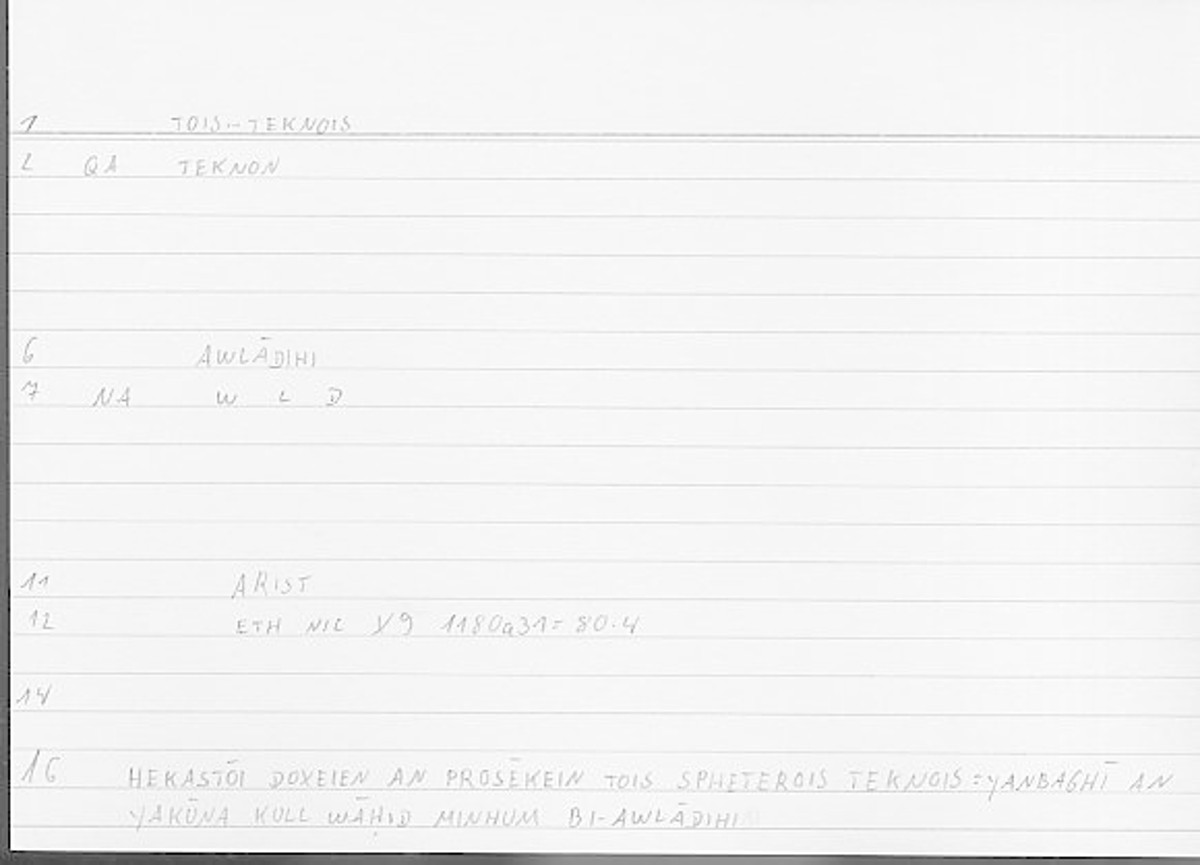 1 TOIS-TEKNOIS
2 QA TEKNON
6 AWLĀDIHI
7 NA W L D
11 ARIST
12 ETH NIC X9 1180a31= 80.4
14
16 HEKASTŌI DOXEIEN AN PROSĒKEIN TOIS SPHETEROIS TEKNOIS = YANBAGHĪ AN
YAKŪNA KULL WĀḤID MINHUM BI-AWLĀDIHI